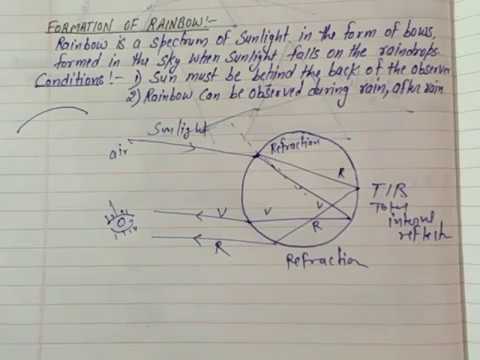 FORMATION OF RAINBOW!-
Rainbow is a spectrum of Sunlight in the form of bows,
formed in the sky when Sunlight falls on the raindrops.
Conditions!- 1) Sun must be behind the back of the observer
2) Rainbow can be observed during rain, after rain
Sunlight
air
Refraction
R
TIR
Total
internal
reflectn
V
V
V
R
R
Refraction